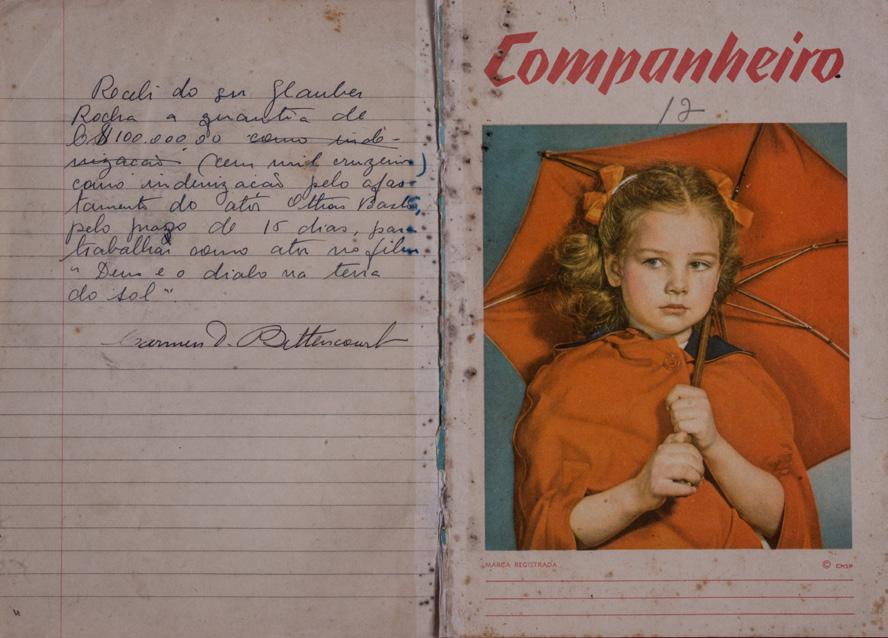 Recebi do snr Glauber
Rocha a quantia de
CR$100.000,00 como inde-
nização (cem mil cruzeiros)
como indenização pelo afas-
tamento do ator Othon Bastos,
pelo prazo de 15 dias, para
trabalhar como ator no filme
"Deus e o diabo na terra
do sol".
Carmen D. Bittencourt
Companheiro
12
MARCA REGISTRADA
© CMSP